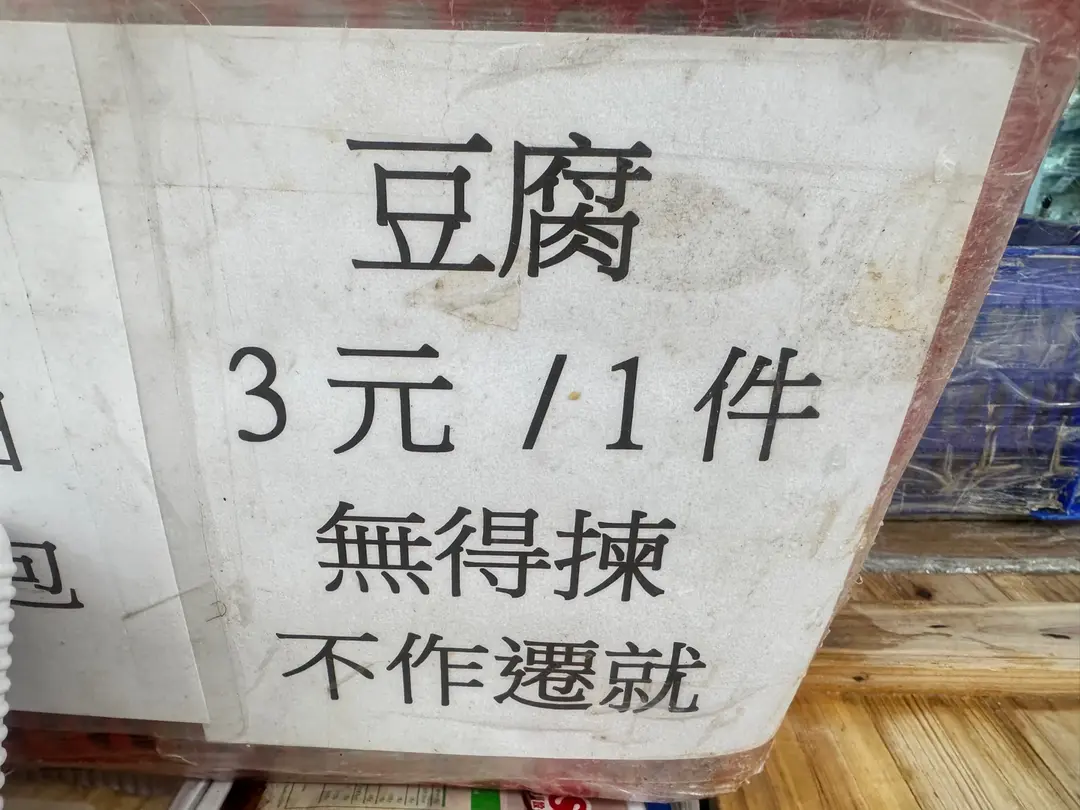 豆腐
3元 /1件
無得揀
不作遷就